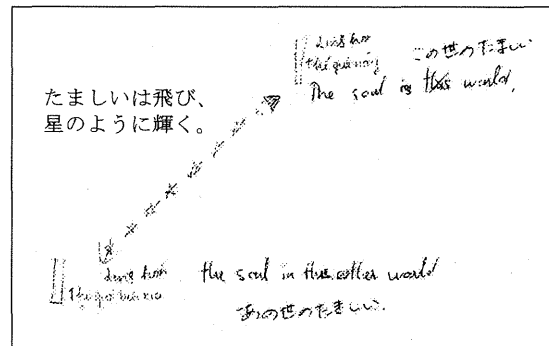 linh hồn
thế giới này
この世のたましい
The soul is this world.
たましいは飛び、
星のように輝く。
linh hồn
Thế giới bên kia
the soul in this other world
あの世のたましい.